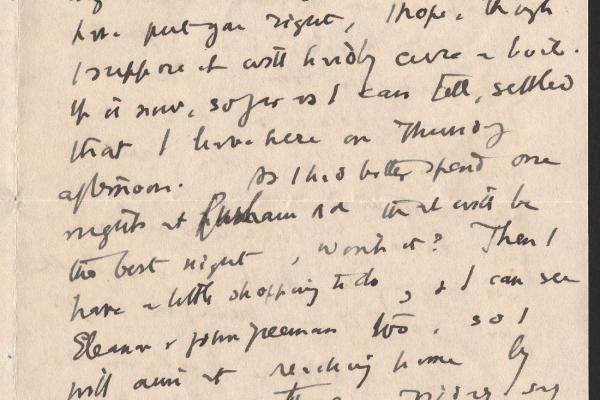 have put you right, I hope, though
I suppose it will hardly cure a boil.
It is now, so far as I can tell, settled
that I leave here on Thursday
afternoon. So I had better spend one
night at that will be
the best night, won't it? Then I
have a little shopping to do, & I can see
Eleanor & John Freeman too. so I
will aim at reaching home by